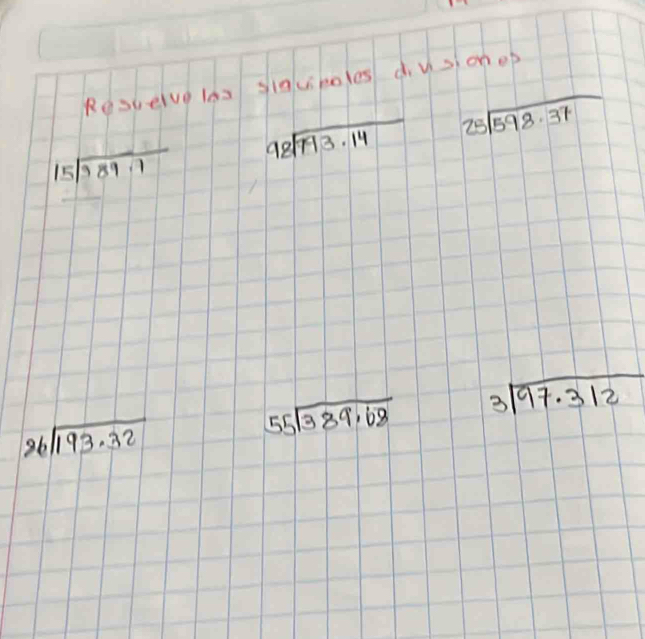 Resuelve las siguientes divisiones
15 389.7 98 793.14 25 598.37
26 193.32 55 389.68 3 97.312